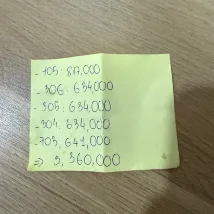 - 105: 817,000
- 306: 634000
- 305: 634,000
- 304: 634,000
- 703, 641,000
=> 3, 360,000